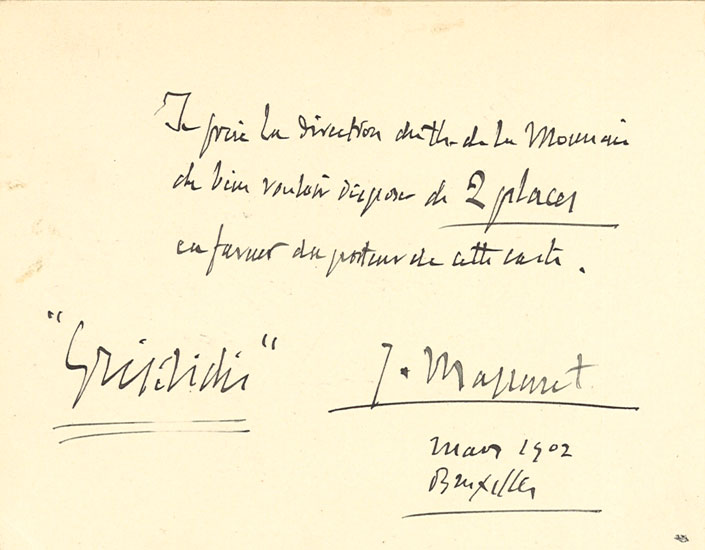 Je prie la direction du th. de la Monnaie
de bien vouloir disposer de 2 places
en faveur du porteur de cette carte.
"Grisélidis"
J. Massenet
Mars 1902
Bruxelles